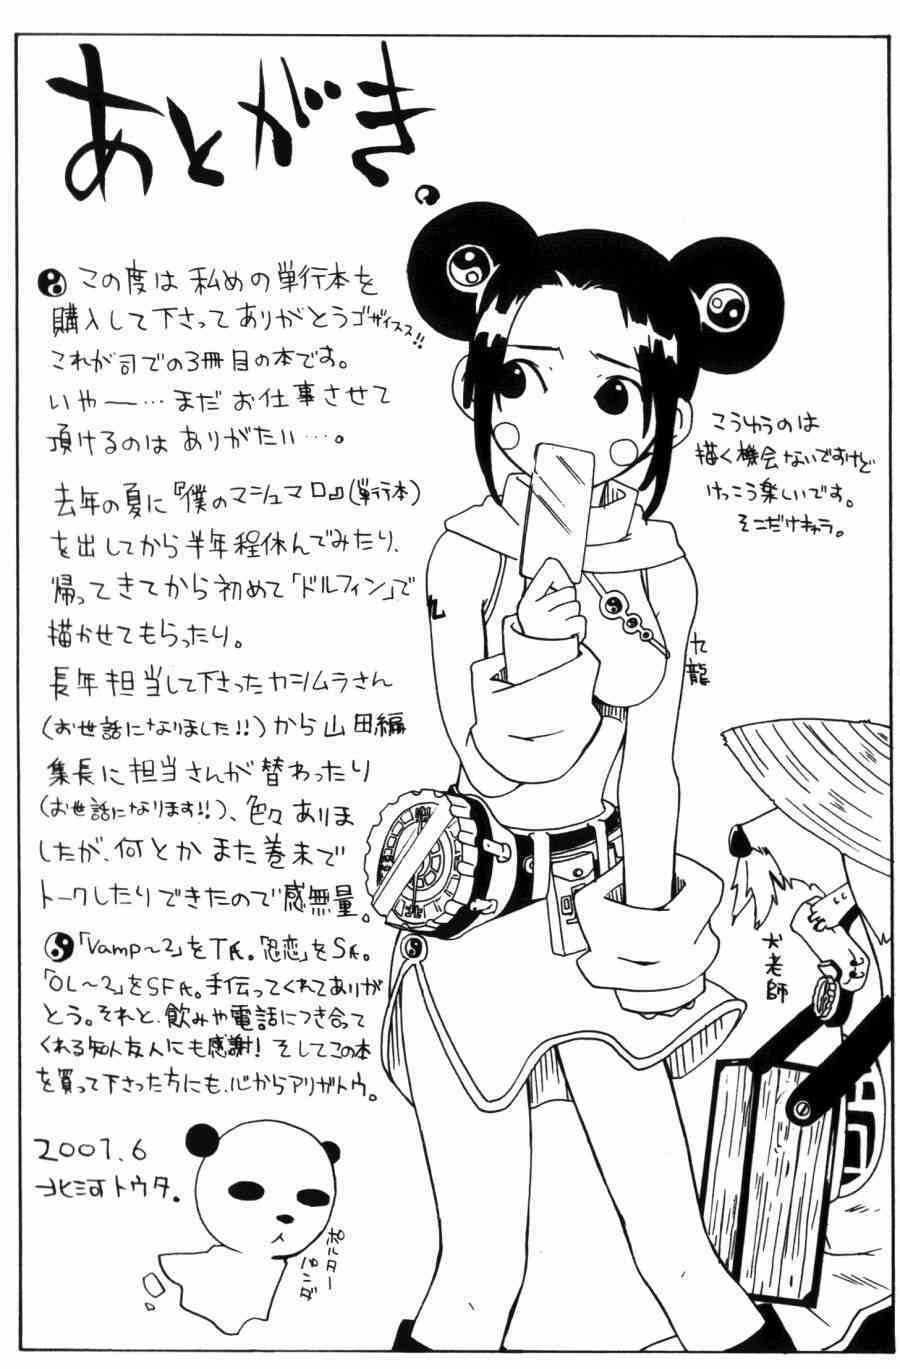 あとがき。
この度は私めの単行本を
購入して下さってありがとうゴザイスス!!
これが司での3冊目の本です。
いやー…まだお仕事させて
頂けるのはありがたい…。
去年の夏に『僕のマシュマロ』(単行本)
を出してから半年程休んでみたり、
帰ってきてから初めて「ドルフィン」で
描かせてもらったり。
長年担当して下さったカシムラさん
(お世話になりました!!)から山田編
集長に担当さんが替わったり
(お世話になります!!)、色々ありま
したが、何とかまた巻末で
トークしたりできたので感無量。
「Vamp〜2」をTK。「忍恋」をSK。
「OL〜2」をSFK。手伝ってくれてありが
とう。それと、飲みや電話につき合って
くれる知人友人にも感謝! そしてこの本
を買って下さった方にも、心からアリガトウ。
2007.6
北河トウタ。
ポルター
パンダ
こうゆうのは
描く機会ないですけど
けっこう楽しいです。
そこだけキャラ。
九龍
犬老師